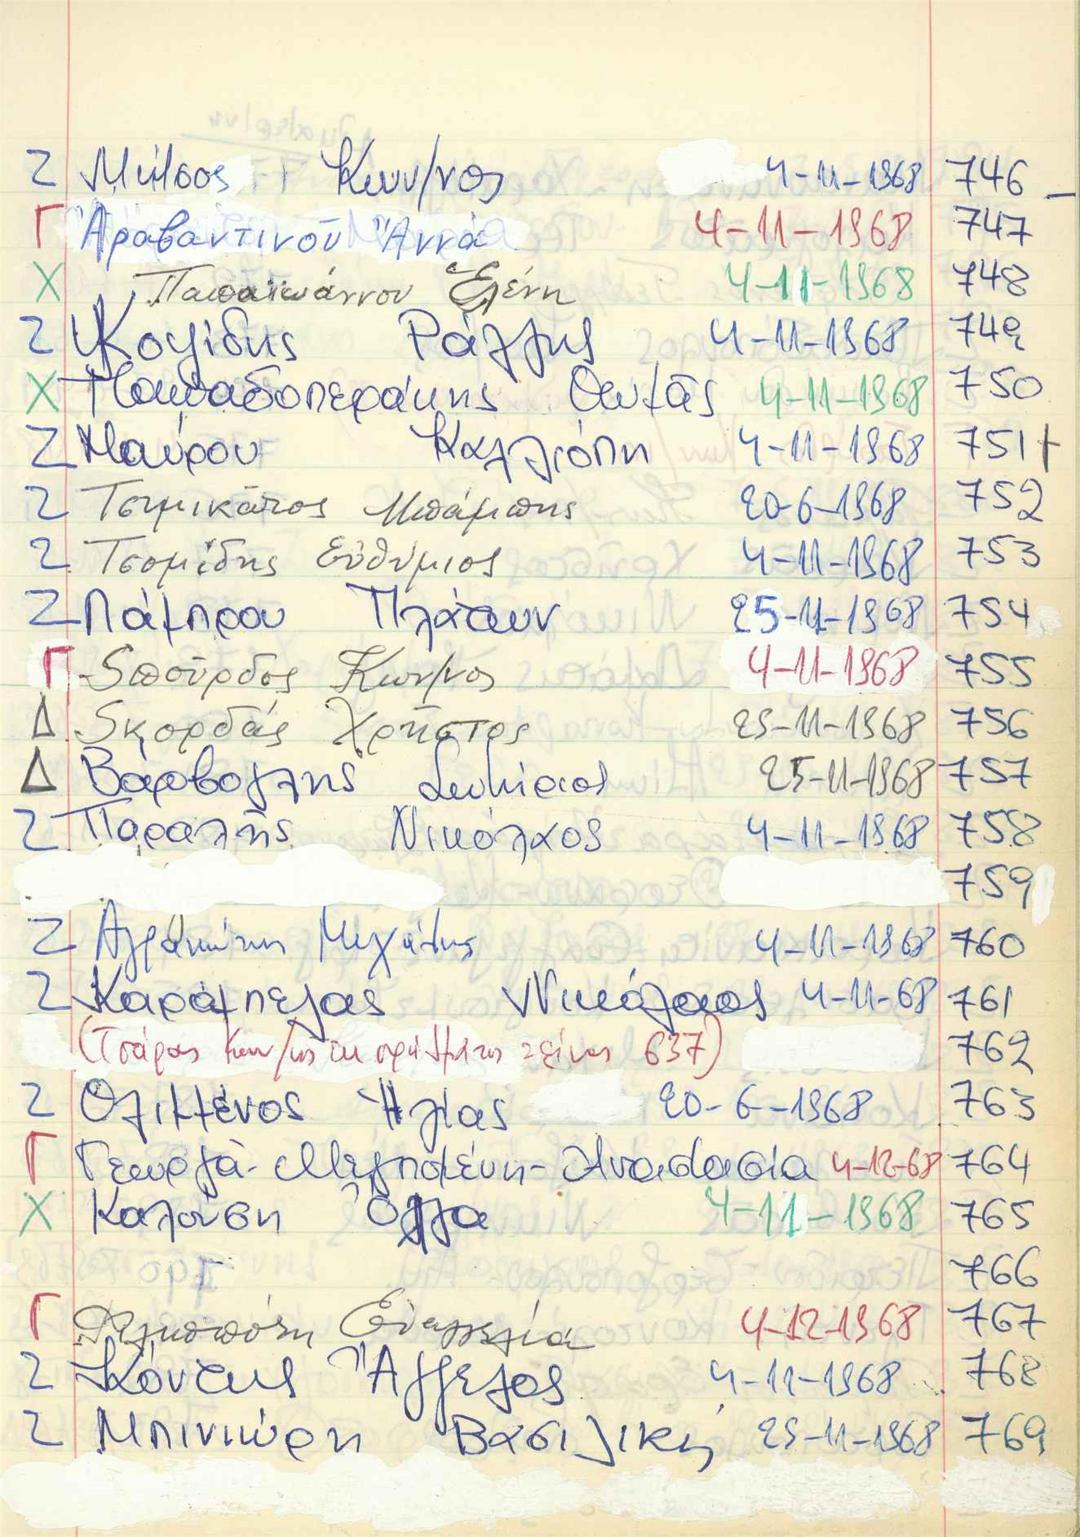 Ζ Μήτσος Κων/νος 4-11-1968 746
Γ Ἀραβαντινοῦ Ἄννα 4-11-1968 747
Χ Παπαϊωάννου Ἑλένη 4-11-1968 748
Ζ Κοψίδης Ράλλης 4-11-1968 749
Χ Παπαδοπεράκης Θωμᾶς 4-11-1968 750
Ζ Μαύρου Καλλιόπη 4-11-1968 751
Ζ Τσιμικᾶτος Μπάμπης 20-6-1968 752
Ζ Τσομίδης Εὐθύμιος 4-11-1968 753
Ζ Λάμπρου Πλάτων 25-11-1968 754
Γ Σπούρδος Κων/νος 4-11-1968 755
Δ Σκορδάς Χρῆστος 25-11-1968 756
Δ Βάρβογλης Σωτήριος 25-11-1968 757
Ζ Παραλῆς Νικόλαος 4-11-1968 758
759
Ζ Μιχάλης 4-11-1968 760
Ζ Καράμπελας Νικόλαος 4-11-68 761
(Τσάρας Κων/νος 637) 762
Ζ Ἠλίας 20-6-1968 763
Γ Ἀναστασία 4-12-68 764
Χ Καλούση Ὄλγα 4-11-1968 765
766
Γ Εὐαγγελία 4-12-1968 767
Ζ Κόντης Ἄγγελος 4-11-1968 768
Ζ Μπινιώρη Βασιλική 25-11-1968 769